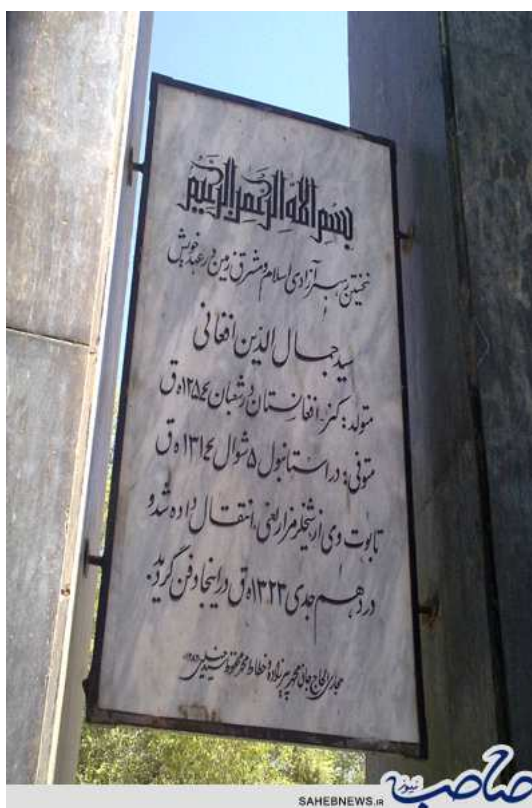 بسم الله الرحمن الرحیم
نخستین رهبر آزادی اسلام و مشرق زمین در عهد خویش
سید جمال الدین افغانی
متولد: کنر، افغانستان در شعبان ۱۲۵۴ه ق
متوفی: در استانبول ۵ شوال ۱۳۱۴ه ق
تابوت وی از شیخلر مزارلغی، انتقال داده شد و
در دهم جدی ۱۳۲۳ه ق در اینجا دفن گردید.
صاحب نیوز
SAHEBNEWS.IR